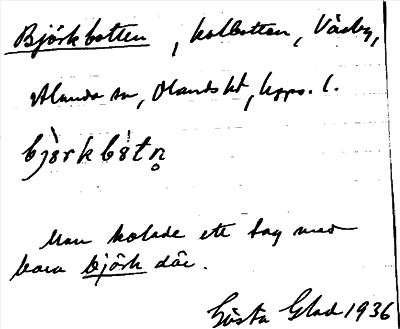 Björkbotten, kolbotten, Väsby,
Alunda sn, Olands hd, Upps. l.
bjö̀rkbò̀tn̥
Man kolade ett tag med
bara björk där.
Gösta Glad 1936